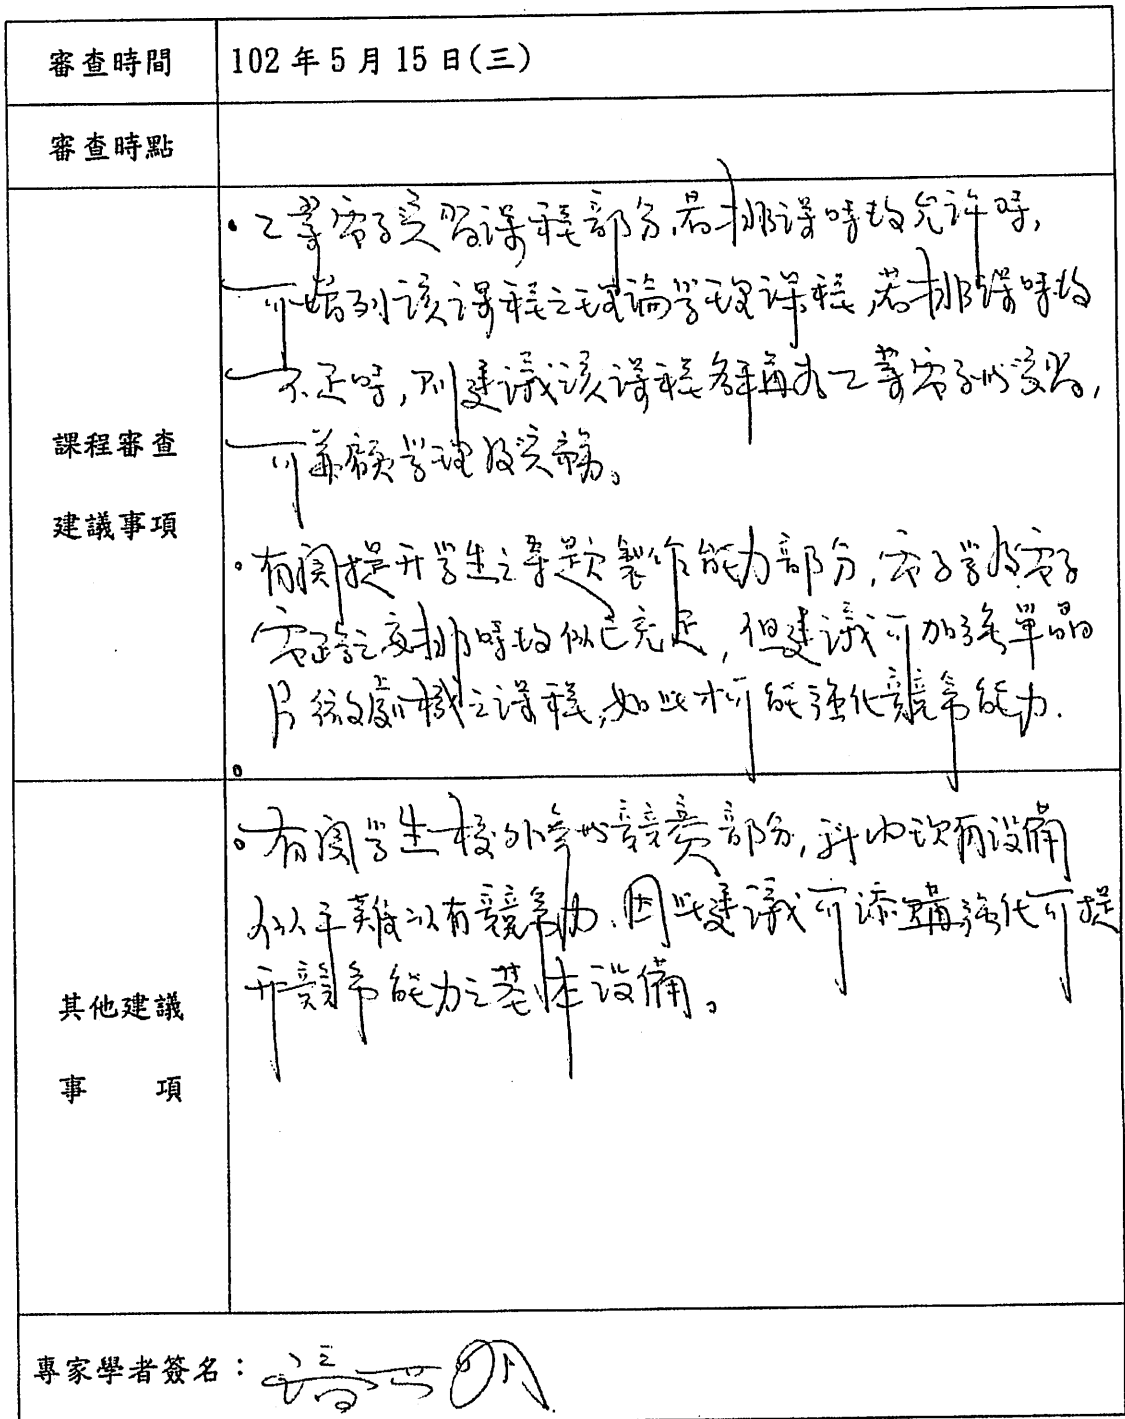 審查時間 102 年 5 月 15 日(三)
審查時點
課程審查
建議事項
・工業電子實習課程部分,若排課時数允許時,
可增列該課程之理論學理課程,若排課時数
不足時,則建議該課程名稱為工業電子与實習,
可兼顧學理及實務。
・有関提升學生之專題製作能力部分,電子學及電子
電路之安排時数似已充足,但建議可加強單晶
片微處機之課程,如此才可能強化競爭能力.
其他建議
事 項
・有関學生校外參与競賽部分,科内現有設備
似乎難以有競爭力.因此建議可添購強化可提
升競爭能力之基本設備。
專家學者簽名: